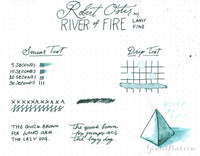 Robert Oster w/
RIVER of FIRE LAMY FINE
Smear Test
Drip Test
5 SECONDS
10 SECONDS
20 SECONDS
30 SECONDS
XXXXXXXXXXXX
THE QUICK BROWN
FOX JUMPS OVER
THE LAZY DOG.
The quick brown
fox jumps over
the lazy dog